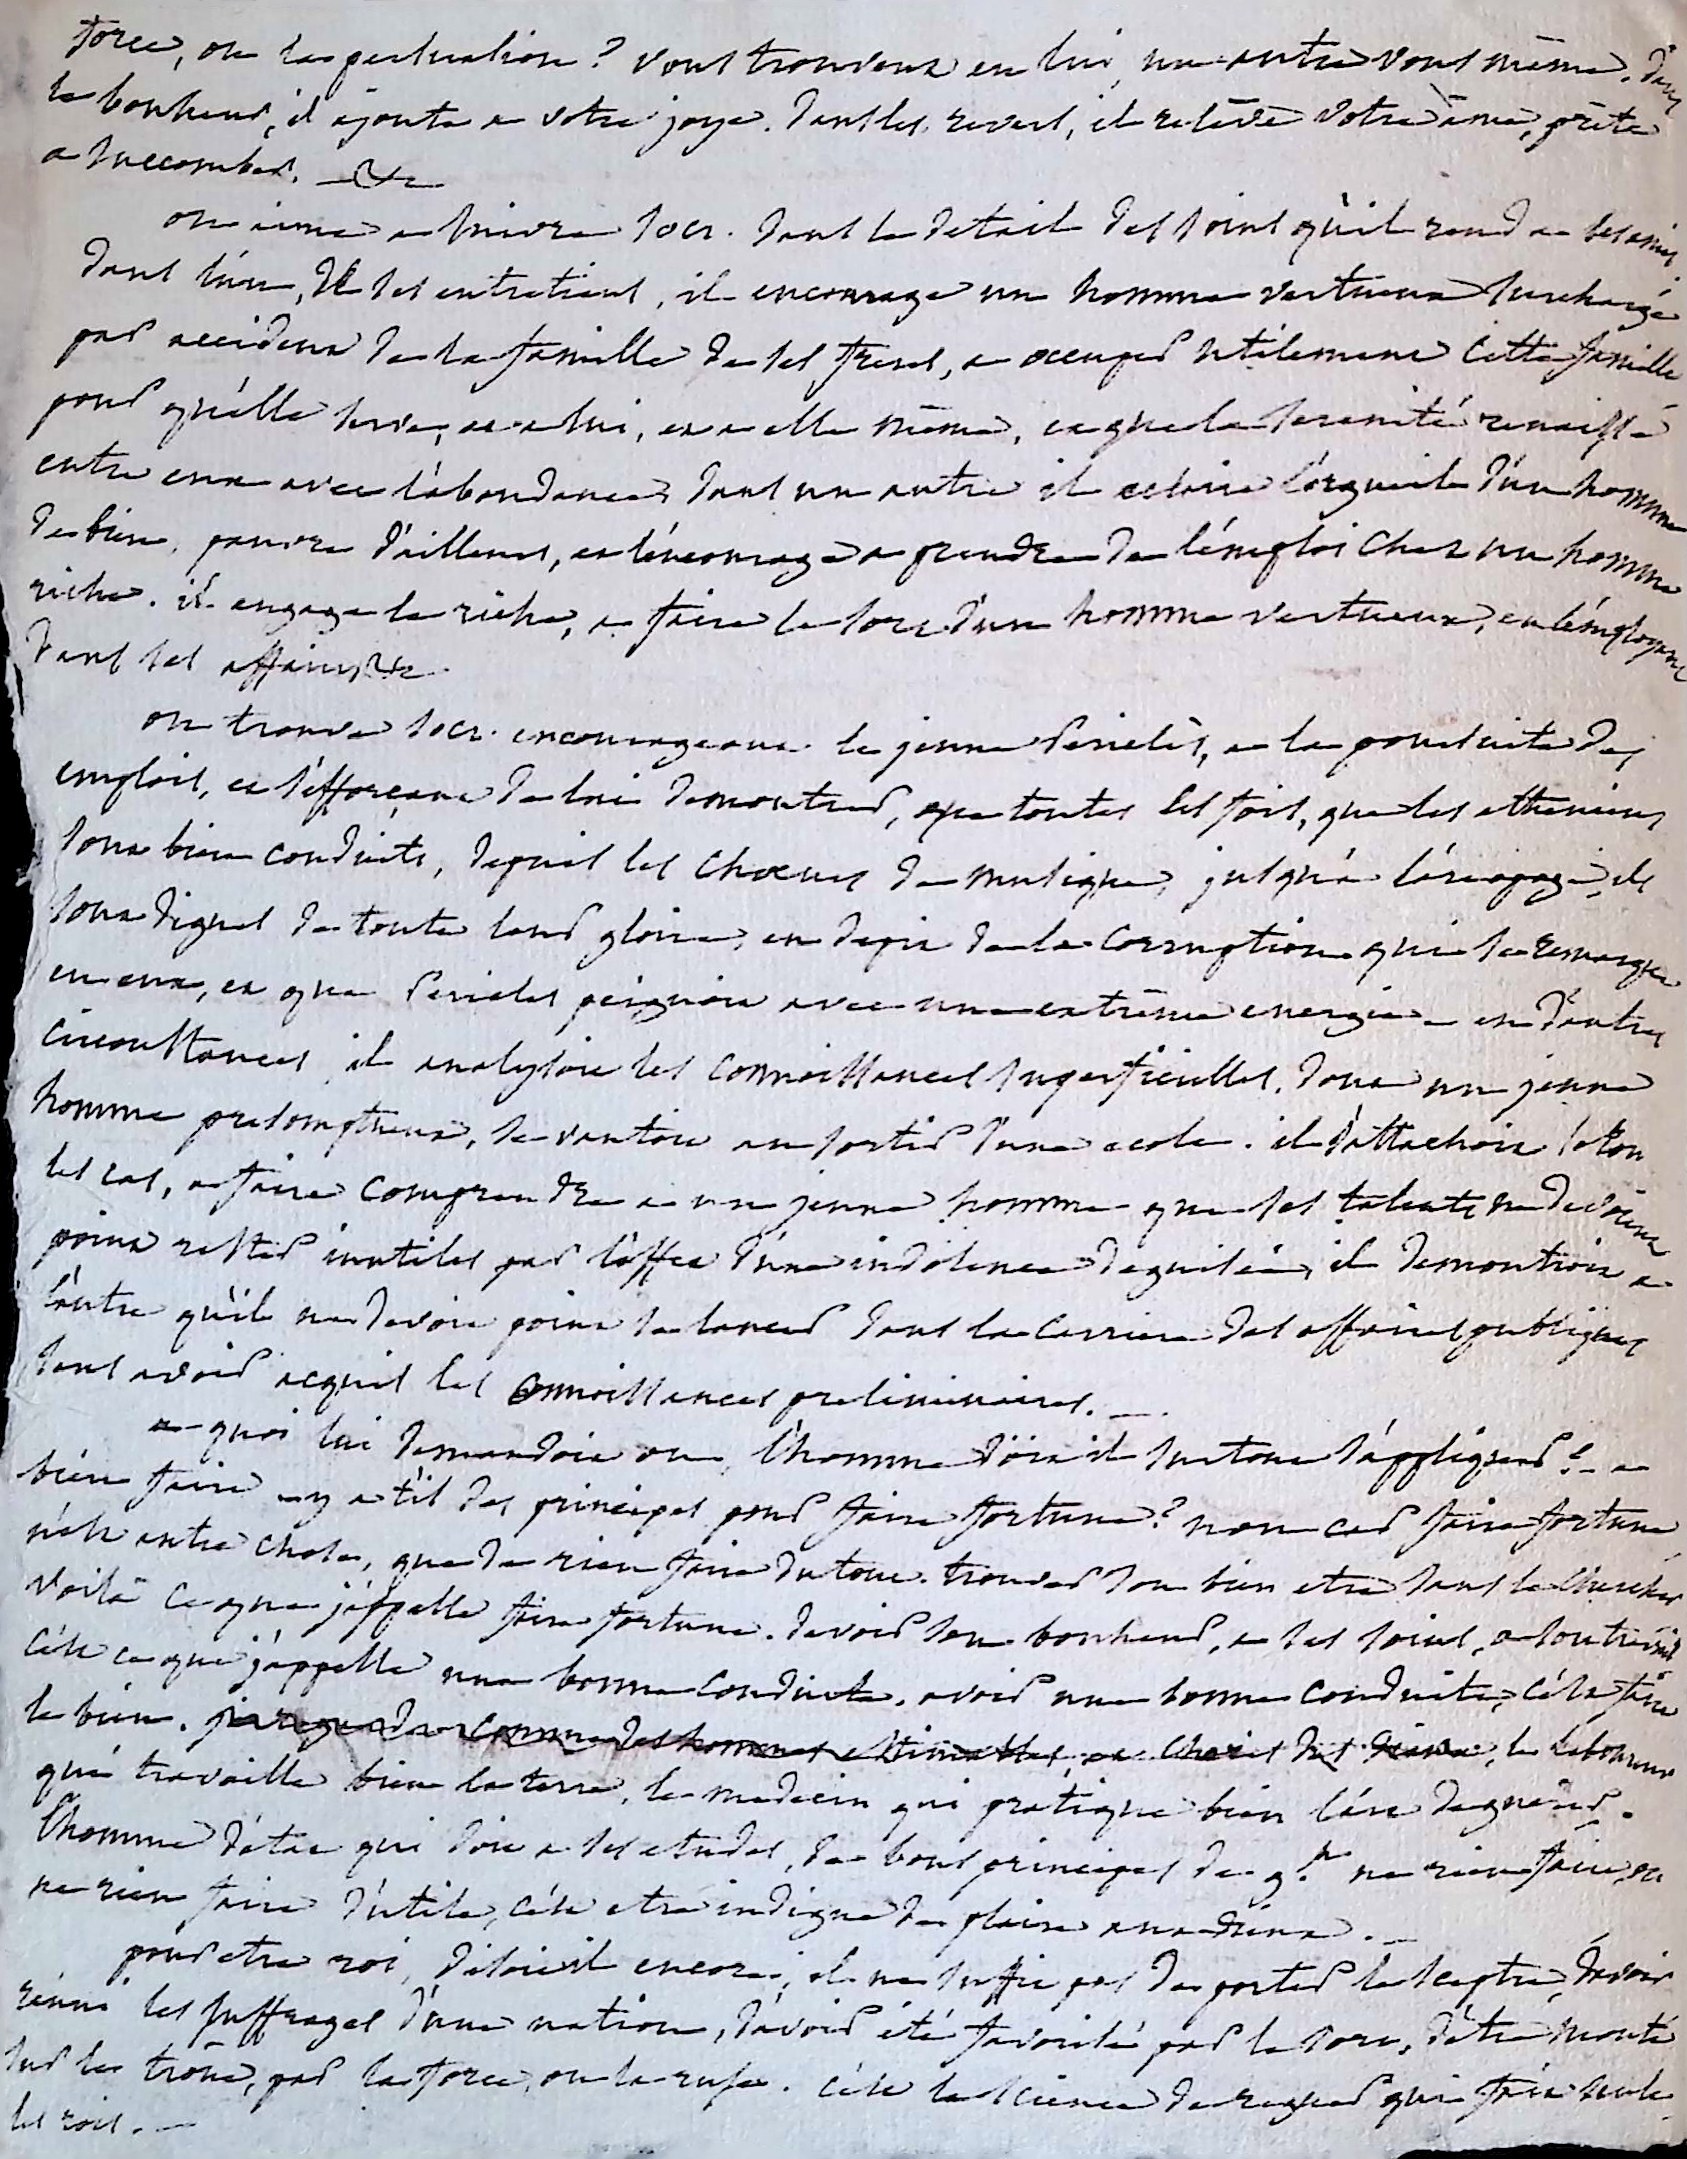 force, ou la persuation? vous trouverez en lui, un autre vous même. dans
le bonheur, il ajoute a votre joye. dans les revers, il relève votre âme, prête
a succomber. &c
on aime a suivre Socr. dans le detail des soins qu'il rend a ses amis.
dans l'un, de ses entretiens, il encourage un homme vertueux surchargé
par accident de la famille de ses freres, a occuper utilement cette famille
pour qu'elle serve, et a lui, et a elle même, et que la serenité renaisse
entre eux avec l'abondance, dans un autre il eclaire l'orgueil d'un homme
de bien, pauvre d'ailleurs, et l'encourage a prendre de l'emploi chez un homme
riche. il engage le riche, a faire le sort d'un homme vertueux, en l'employant
dans ses affaires &c.
on trouve Socr. encourageant le jeune Periclès, a la poursuite des
emplois, et s'efforçant de lui demontrer, que toutes les fois, que les atheniens
sont bien conduits, depuis les choeurs de musique, jusqu'a l'areopage, ils
sont dignes de toute leur gloire, en depit de la corruption qui se remarque
en eux, et que Pericles peignoit avec une extrême energie. en d'autres
circonstances il analysoit les connoissances superficielles, dont un jeune
homme presomptueux, se vantoit au sortir d'une ecole. il s'attachoit selon
les cas, a faire comprendre a un jeune homme que ses talents ne devoient
point rester inutiles par l'effet d'une indolence deguisée, il demontroit a
l'autre qu'il ne devoit point se lancer dans la carriere des affaires publiques
sans avoir acquis les connoissances preliminaires. —
a quoi lui demandoit on, l'homme doit il surtout s'appliquer? — a
bien faire — y a t'il des principes pour faire fortune? non car faire fortune
n'est autre chose, que de rien faire du tout. trouver son bien etre sans le chercher
voilà ce que j'appelle faire fortune. devoir son bonheur, a ses soins, a son travail
c'est ce que j'appelle une bonne conduite. avoir une bonne conduite, c'est faire
le bien. je regarde comme des hommes estimables, et cheris des Dieux, le laboureur
qui travaille bien la terre, le medecin qui pratique bien l'art de guérir.
l'homme d'état qui doit a ses etudes, de bons principes de g.t ne rien faire, ou
ne rien faire d'utile, c'est etre indigne de plaire aux dieux. —
pour etre roi, disoit il encore, il ne suffit pas de porter le sceptre, d'avoir
réuni les suffrages d'une nation, d'avoir été favorisé par le sort, d'être monté
sur le trône, par la force, ou la ruse. c'est la science de regner qui fait seule
les rois. —